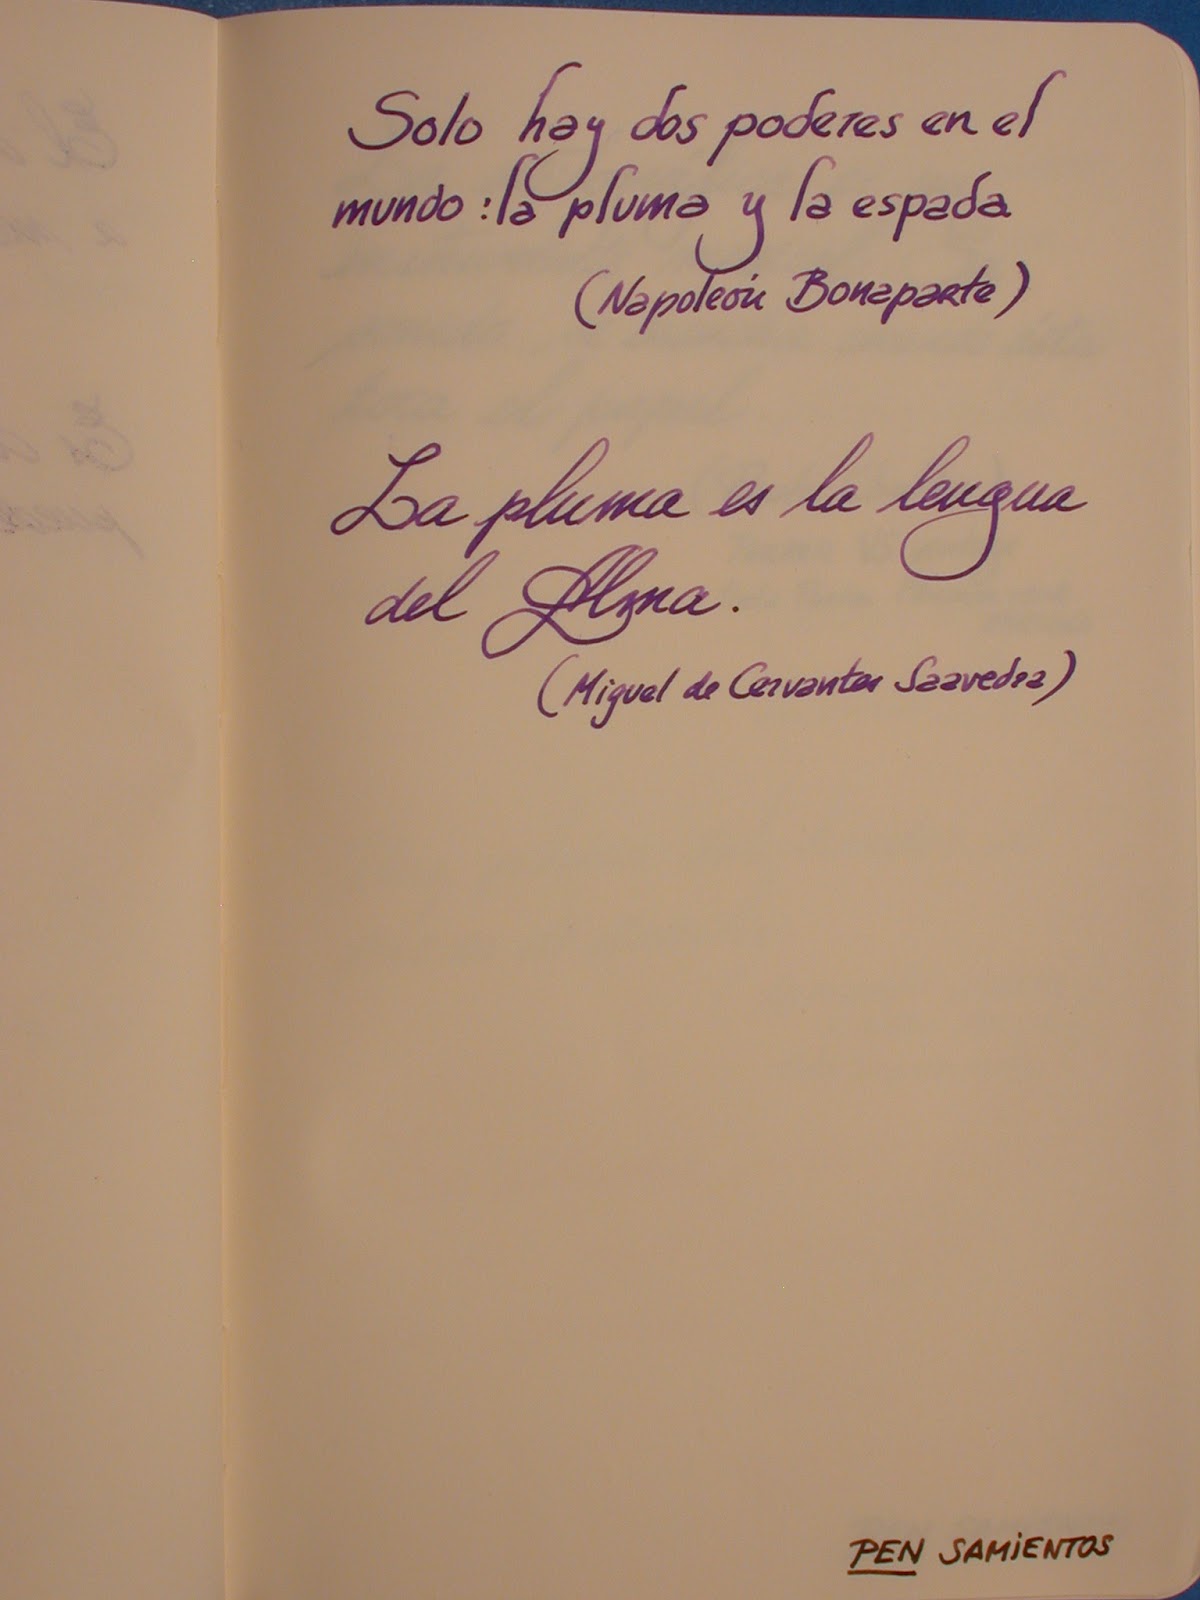 Solo hay dos poderes en el
mundo: la pluma y la espada
(Napoleón Bonaparte)
La pluma es la lengua
del Alma.
(Miguel de Cervantes Saavedra)
PEN SAMiENTOS